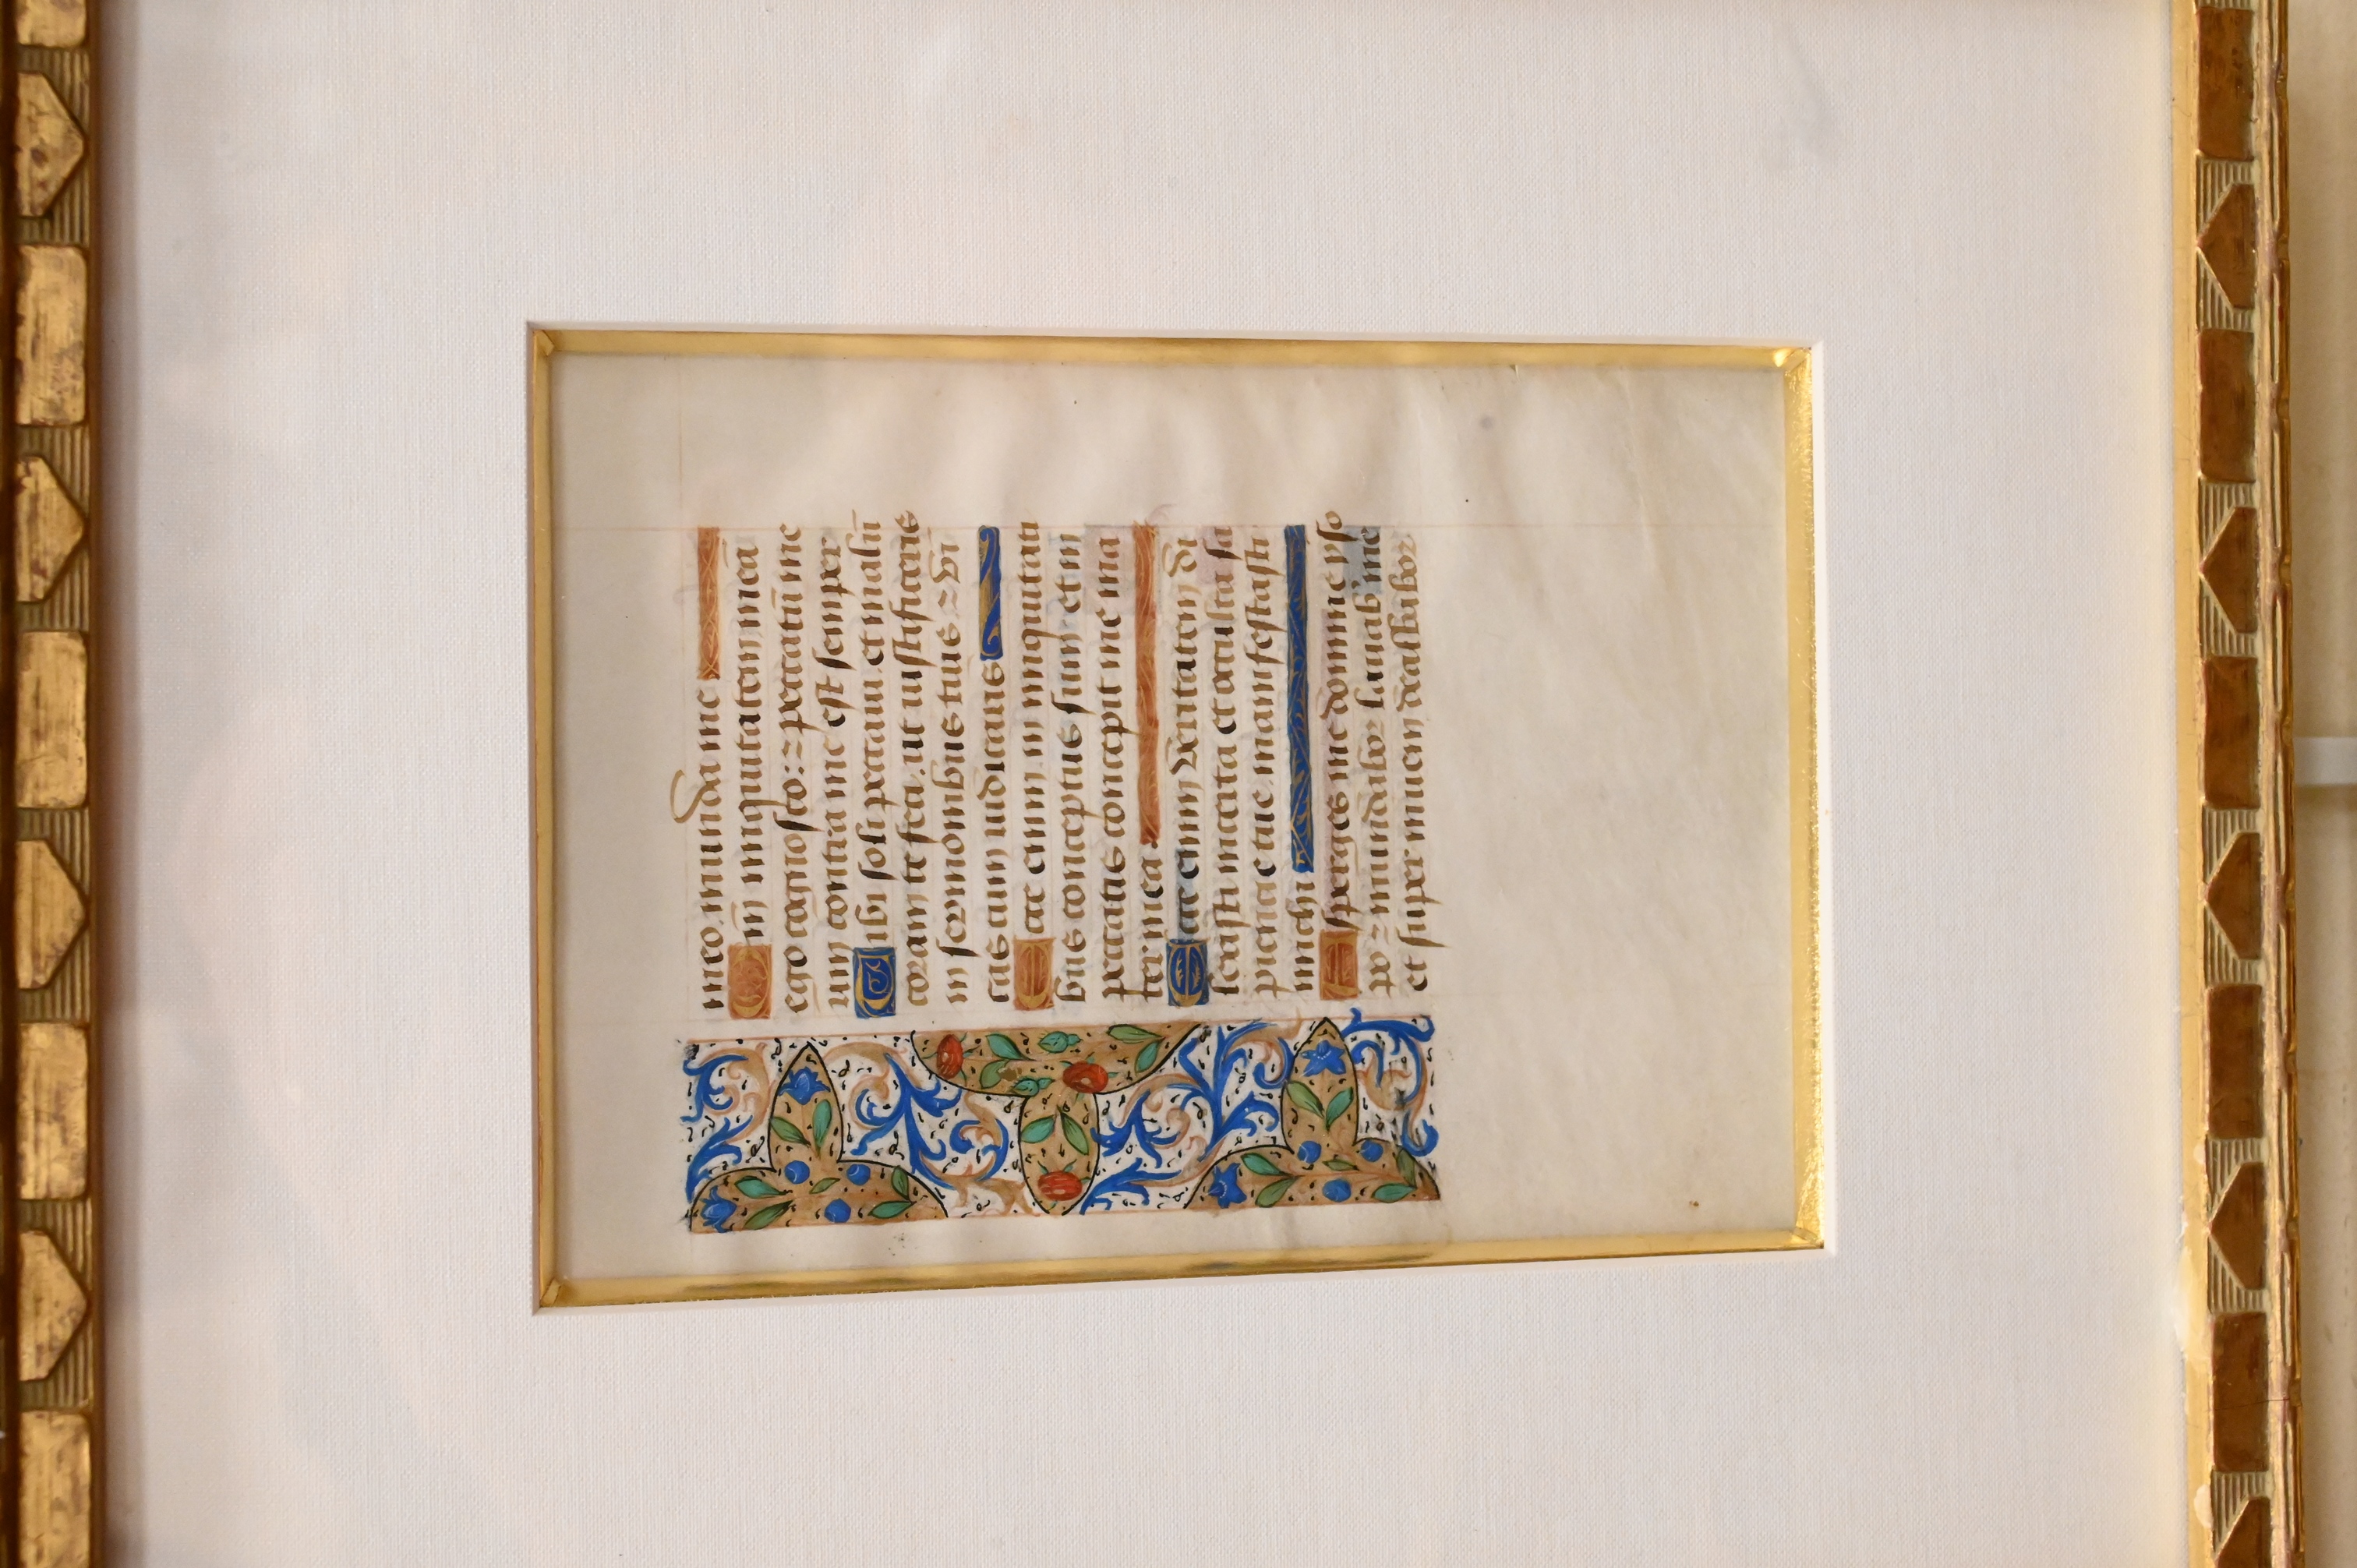 meo. munda me
Qm̄ iniquitatem meā
ego cognosco: ⁊ peccatū me
um contra me est semper
Tibi soli peccaui. et malū
coram te feci. ut iustificeris
in sermonibus tuis ⁊ vī
cas cum iudicaris
Ecce enim in iniquitati
bus conceptus sum et in
peccatis concepit me ma
ter mea.
Ecce enim veritatem di
lexisti incerta et occulta sa
pientie tue manifestasti
michi
Asperges me domine yso
po ⁊ mundabor lauab' me
et super niuem dealbabor